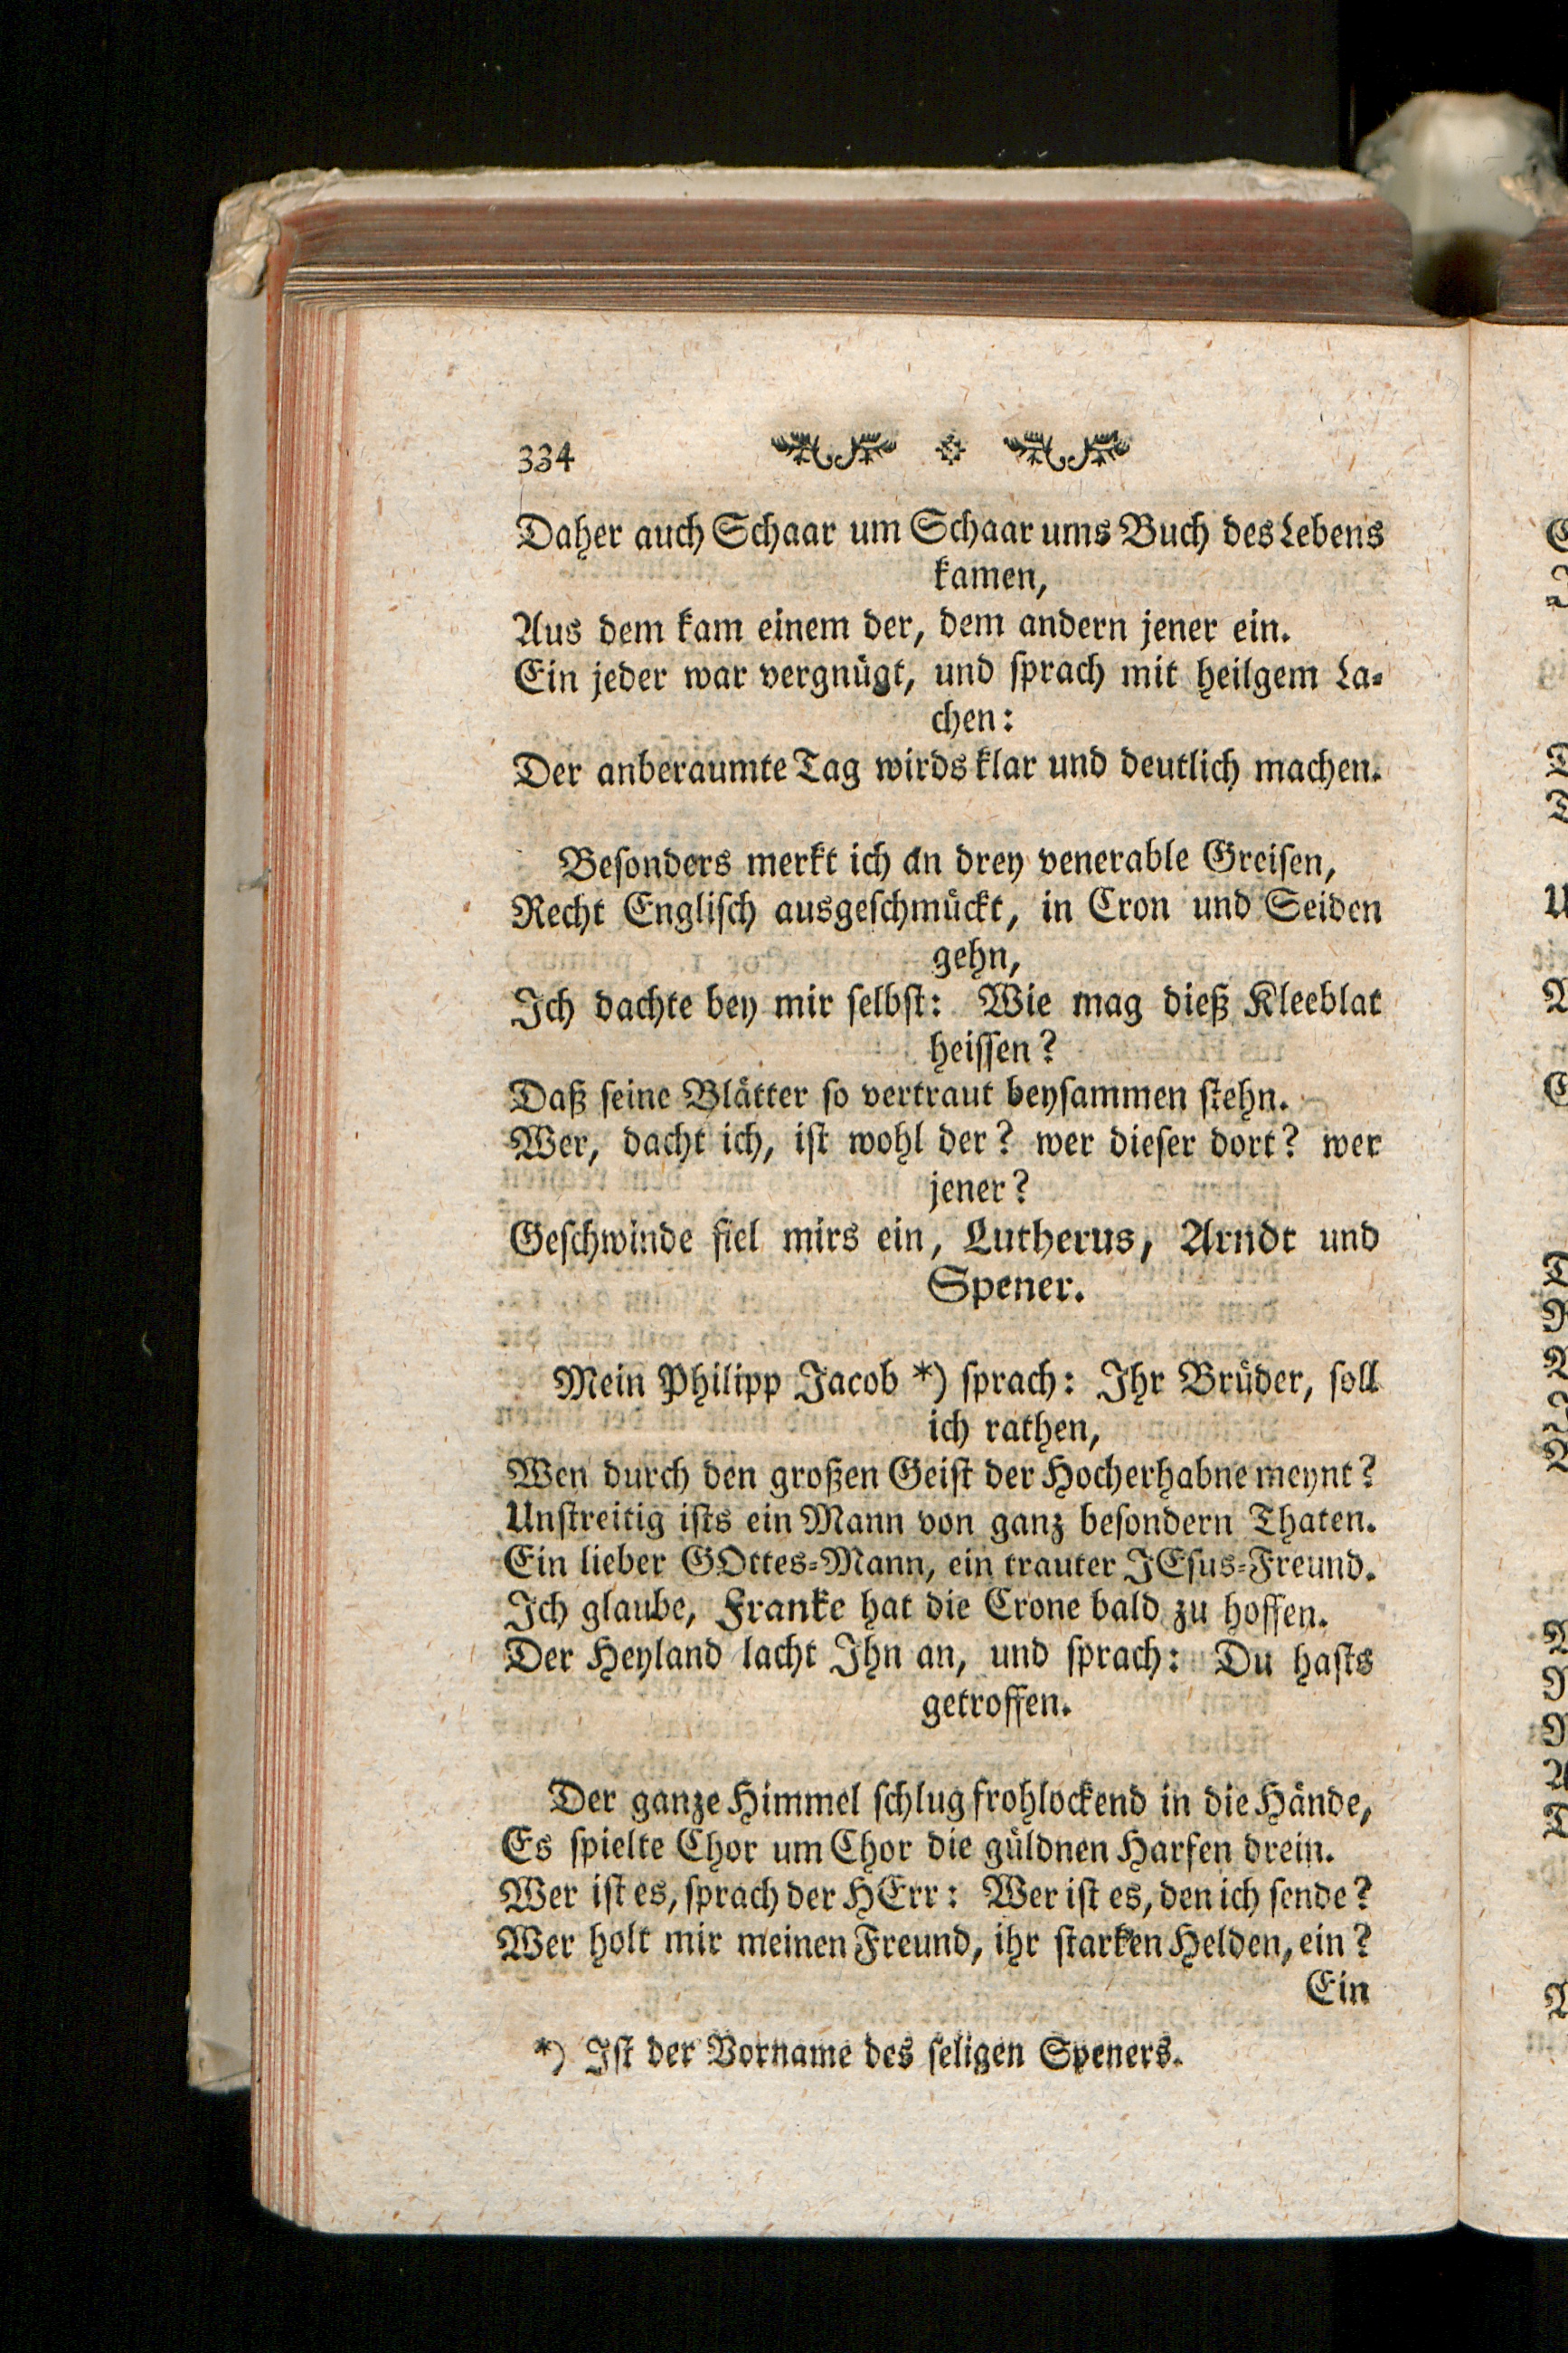 334
Daher auch Schaar um Schaar ums Buch des Lebens
kamen,
Aus dem kam einem der, dem andern jener ein.
Ein jeder war vergnügt, und sprach mit heilgem La-
chen:
Der anberaumte Tag wirds klar und deutlich machen.
Besonders merkt ich an drey venerable Greisen,
Recht Englisch ausgeschmückt, in Cron und Seiden
gehn,
Ich dachte bey mir selbst: Wie mag dieß Kleeblat
heissen?
Daß seine Blätter so vertraut beysammen stehn.
Wer, dacht ich, ist wohl der? wer dieser dort? wer
jener?
Geschwinde fiel mirs ein, Lutherus, Arndt und
Spener.
Mein Philipp Jacob *) sprach: Ihr Brüder, soll
ich rathen,
Wen durch den großen Geist der Hocherhabne meynt?
Unstreitig ists ein Mann von ganz besondern Thaten.
Ein lieber GOttes-Mann, ein trauter JEsus-Freund.
Ich glaube, Franke hat die Crone bald zu hoffen.
Der Heyland lacht Ihn an, und sprach: Du hasts
getroffen.
Der ganze Himmel schlug frohlockend in die Hände,
Es spielte Chor um Chor die güldnen Harfen drein.
Wer ist es, sprach der HErr: Wer ist es, den ich sende?
Wer holt mir meinen Freund, ihr starken Helden, ein?
Ein
*) Ist der Vorname des seligen Speners.